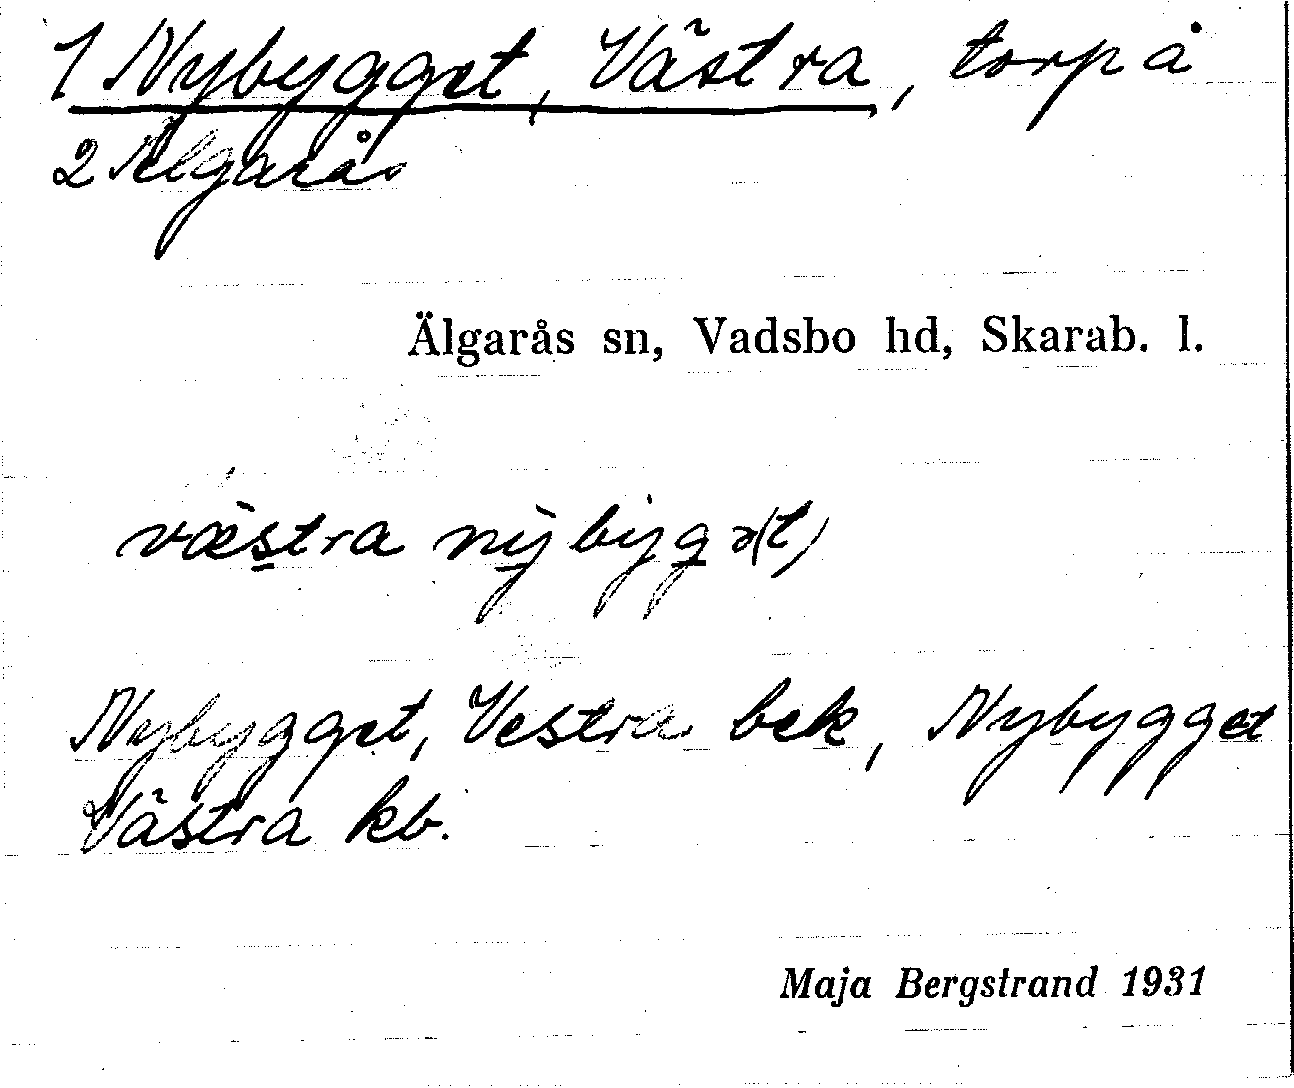 1 Nybygget, Västra, torp å
2 Älgarås
Älgarås sn, Vadsbo hd, Skarab. l.
væ̀stra nỳbygə(t)
Nybygget, Vestra bek, Nybygget
Västra kb.
Maja Bergstrand 1931